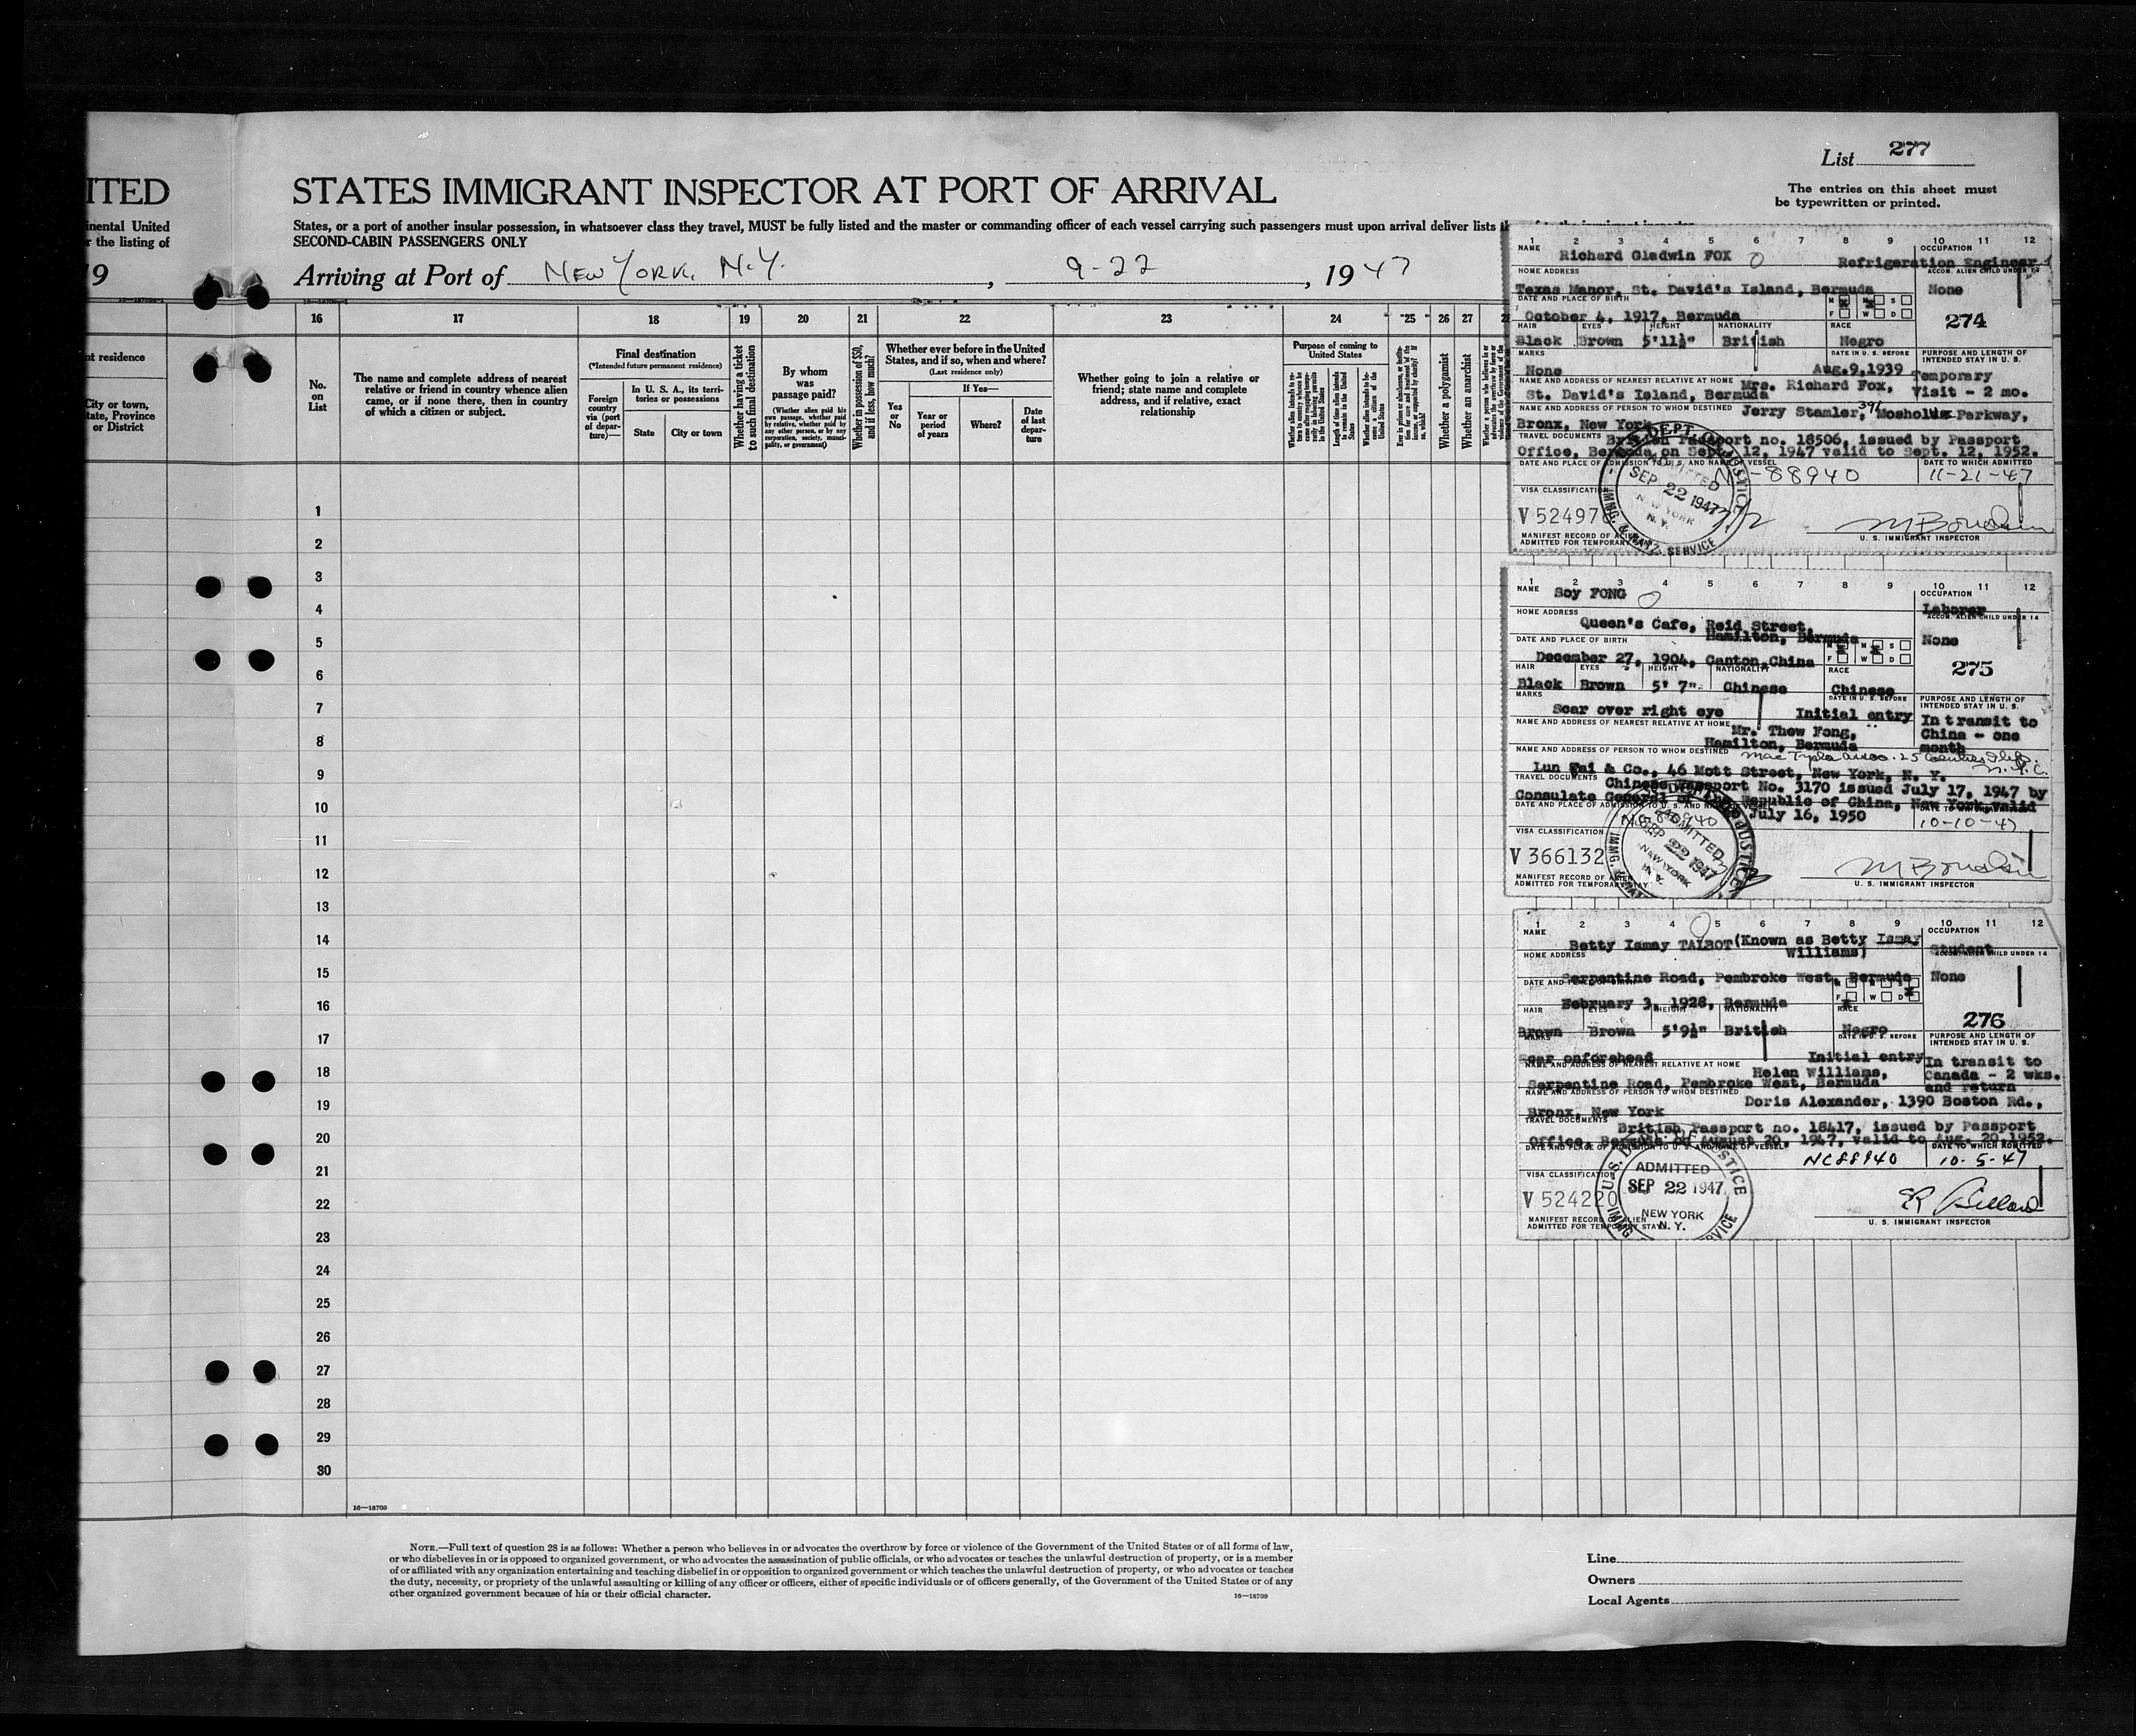 List 277
The entries on this sheet must
be typewritten or printed.
ITED
STATES IMMIGRANT INSPECTOR AT PORT OF ARRIVAL
inental United
r the listing of
States, or a port of another insular possession, in whatsoever class they travel, MUST be fully listed and the master or commanding officer of each vessel carrying such passengers must upon arrival deliver lists
SECOND-CABIN PASSENGERS ONLY
19
Arriving at Port of New York, N.Y. , 9-22 , 1947
16 17 18 19 20 21 22 23 24 25 26 27
nt residence
City or town,
tate, Province
or District
No.
on
List
The name and complete address of nearest
relative or friend in country whence alien
came, or if none there, then in country
of which a citizen or subject.
Final destination
(*Intended future permanent residence)
Foreign
country
via (port
of depar-
ture)—
In U. S. A., its terri-
tories or possessions
State
City or town
Whether having a ticket
to such final destination
By whom
was
passage paid?
(Whether alien paid his
own passage, whether paid
by relative, whether paid by
any other person, or by any
corporation, society, munici-
pality, or government)
Whether in possession of $50,
and if less, how much?
Whether ever before in the United
States, and if so, when and where?
(Last residence only)
Yes
or
No
If Yes—
Year or
period
of years
Where?
Date
of last
depar-
ture
Whether going to join a relative or
friend; state name and complete
address, and if relative, exact
relationship
Purpose of coming to
United States
Whether a polygamist
Whether an anarchist
1
2
3
4
5
6
7
8
9
10
11
12
13
14
15
16
17
18
19
20
21
22
23
24
25
26
27
28
29
30
16—18709
1 2 3 4 5 6 7 8 9 10 11 12
NAME Richard Gladwin FOX
OCCUPATION Refrigeration Engineer
HOME ADDRESS
Texas Manor, St. David's Island, Bermuda
ACCOM. ALIEN CHILD UNDER 14
None
DATE AND PLACE OF BIRTH
October 4, 1917, Bermuda
M M S
F W D
274
HAIR EYES HEIGHT NATIONALITY RACE
Black Brown 5'11½" British Negro
MARKS None
DATE IN U. S. BEFORE Aug.9,1939
PURPOSE AND LENGTH OF
INTENDED STAY IN U. S.
Temporary
Visit - 2 mo.
NAME AND ADDRESS OF NEAREST RELATIVE AT HOME Mrs. Richard Fox,
St. David's Island, Bermuda
NAME AND ADDRESS OF PERSON TO WHOM DESTINED Jerry Stamler, Mosholu Parkway,
Bronx, New York
TRAVEL DOCUMENTS British Passport no. 18506, issued by Passport
Office, Bermuda on Sept. 12, 1947 valid to Sept. 12, 1952.
DATE AND PLACE OF ADMISSION TO U. S. AND NAME OF VESSEL
88940
DATE TO WHICH ADMITTED
11-21-47
VISA CLASSIFICATION
V 52497
ADMITTED
SEP 22 1947
NEW YORK
N. Y.
MANIFEST RECORD OF ALIEN
ADMITTED FOR TEMPORARY STAY
U. S. IMMIGRANT INSPECTOR
1 2 3 4 5 6 7 8 9 10 11 12
NAME Soy FONG
OCCUPATION Laborer
HOME ADDRESS
Queen's Cafe, Reid Street,
Hamilton, Bermuda
ACCOM. ALIEN CHILD UNDER 14
None
DATE AND PLACE OF BIRTH
December 27, 1904, Canton,China
M M S
F W D
275
HAIR EYES HEIGHT NATIONALITY RACE
Black Brown 5' 7" Chinese Chinese
MARKS
Scar over right eye
DATE IN U. S. BEFORE
Initial entry
PURPOSE AND LENGTH OF
INTENDED STAY IN U. S.
In transit to
China - one
month
NAME AND ADDRESS OF NEAREST RELATIVE AT HOME Mr. Thow Fong,
Hamilton, Bermuda
NAME AND ADDRESS OF PERSON TO WHOM DESTINED
Lun Fai & Co., 46 Mott Street, New York, N. Y.
TRAVEL DOCUMENTS Chinese Passport No. 3170 issued July 17, 1947 by
Consulate General of the Republic of China, New York valid
to July 16, 1950
DATE AND PLACE OF ADMISSION TO U. S. AND NAME OF VESSEL
10-10-47
VISA CLASSIFICATION
V 366132
ADMITTED
SEP 22 1947
NEW YORK
N. Y.
MANIFEST RECORD OF ALIEN
ADMITTED FOR TEMPORARY STAY
U. S. IMMIGRANT INSPECTOR
1 2 3 4 5 6 7 8 9 10 11 12
NAME Betty Ismay TALBOT (Known as Betty Ismay
Williams)
OCCUPATION Student
HOME ADDRESS
Serpentine Road, Pembroke West, Bermuda
ACCOM. ALIEN CHILD UNDER 14
None
DATE AND PLACE OF BIRTH
February 3, 1928, Bermuda
F W D
276
HAIR EYES HEIGHT NATIONALITY RACE
Brown Brown 5'9½" British Negro
MARKS
Scar onforehead
DATE IN U. S. BEFORE
Initial entry
PURPOSE AND LENGTH OF
INTENDED STAY IN U. S.
In transit to
Canada - 2 wks.
and return
NAME AND ADDRESS OF NEAREST RELATIVE AT HOME Helen Williams,
Serpentine Road, Pembroke West, Bermuda
NAME AND ADDRESS OF PERSON TO WHOM DESTINED Doris Alexander, 1390 Boston Rd.,
Bronx, New York
TRAVEL DOCUMENTS British Passport no. 18417, issued by Passport
Office, Bermuda on August 20, 1947, valid to Aug. 20,1952.
DATE AND PLACE OF ADMISSION TO U. S. AND NAME OF VESSEL
NC88940
DATE TO WHICH ADMITTED
10-5-47
VISA CLASSIFICATION
V 524220
ADMITTED
SEP 22 1947
NEW YORK
N. Y.
MANIFEST RECORD OF ALIEN
ADMITTED FOR TEMPORARY STAY
U. S. IMMIGRANT INSPECTOR
NOTE.—Full text of question 28 is as follows: Whether a person who believes in or advocates the overthrow by force or violence of the Government of the United States or of all forms of law,
or who disbelieves in or is opposed to organized government, or who advocates the assassination of public officials, or who advocates or teaches the unlawful destruction of property, or is a member
of or affiliated with any organization entertaining and teaching disbelief in or opposition to organized government or which teaches the unlawful destruction of property, or who advocates or teaches
the duty, necessity, or propriety of the unlawful assaulting or killing of any officer or officers, either of specific individuals or of officers generally, of the Government of the United States or of any
other organized government because of his or their official character.
16—18709
Line
Owners
Local Agents